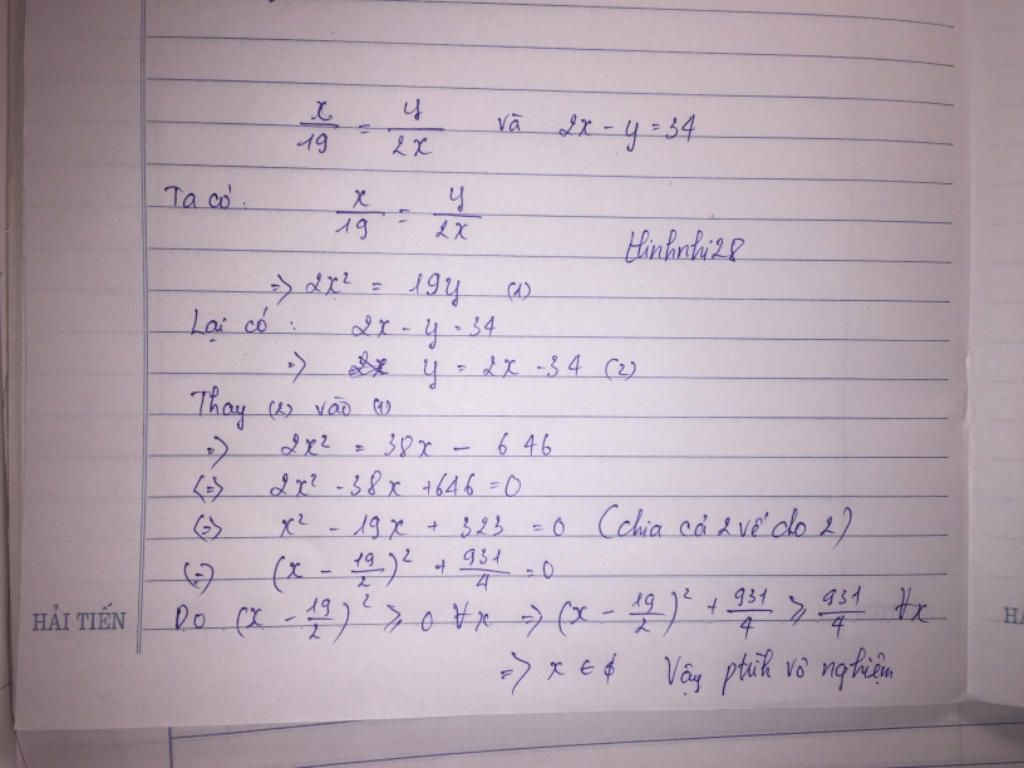 x/19 = y/2x và 2x - y = 34
Ta có: x/19 = y/2x
thinhnhi28
=> 2x² = 19y (1)
Lại có: 2x - y = 34
=> y = 2x - 34 (2)
Thay (2) vào (1)
=> 2x² = 38x - 646
<=> 2x² - 38x + 646 = 0
<=> x² - 19x + 323 = 0 (chia cả 2 vế cho 2)
<=> (x - 19/2)² + 931/4 = 0
HẢI TIẾN
Do (x - 19/2)² ⩾ 0 ∀x => (x - 19/2)² + 931/4 ⩾ 931/4 ∀x
=> x ∈ ϕ Vậy ptrình vô nghiệm